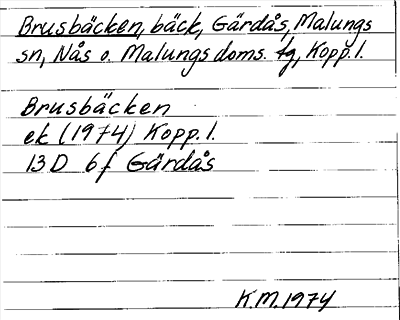 Brusbäcken, bäck, Gärdås, Malungs
sn, Nås o. Malungs doms. tg, Kopp. l.
Brusbäcken
ek (1974) Kopp. l.
13D 6f Gärdås
K.M. 1974